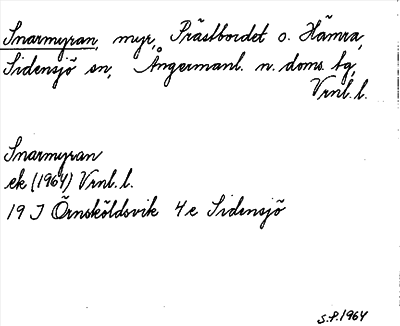 Snarmyran, myr, Prästbordet o. Hämra,
Sidensjö sn, Ångermanl. n. doms. tg,
Vrnl. l.
Snarmyran
ek (1964) Vrnl. l.
19 J Örnsköldsvik 4 e Sidensjö
S.P. 1964